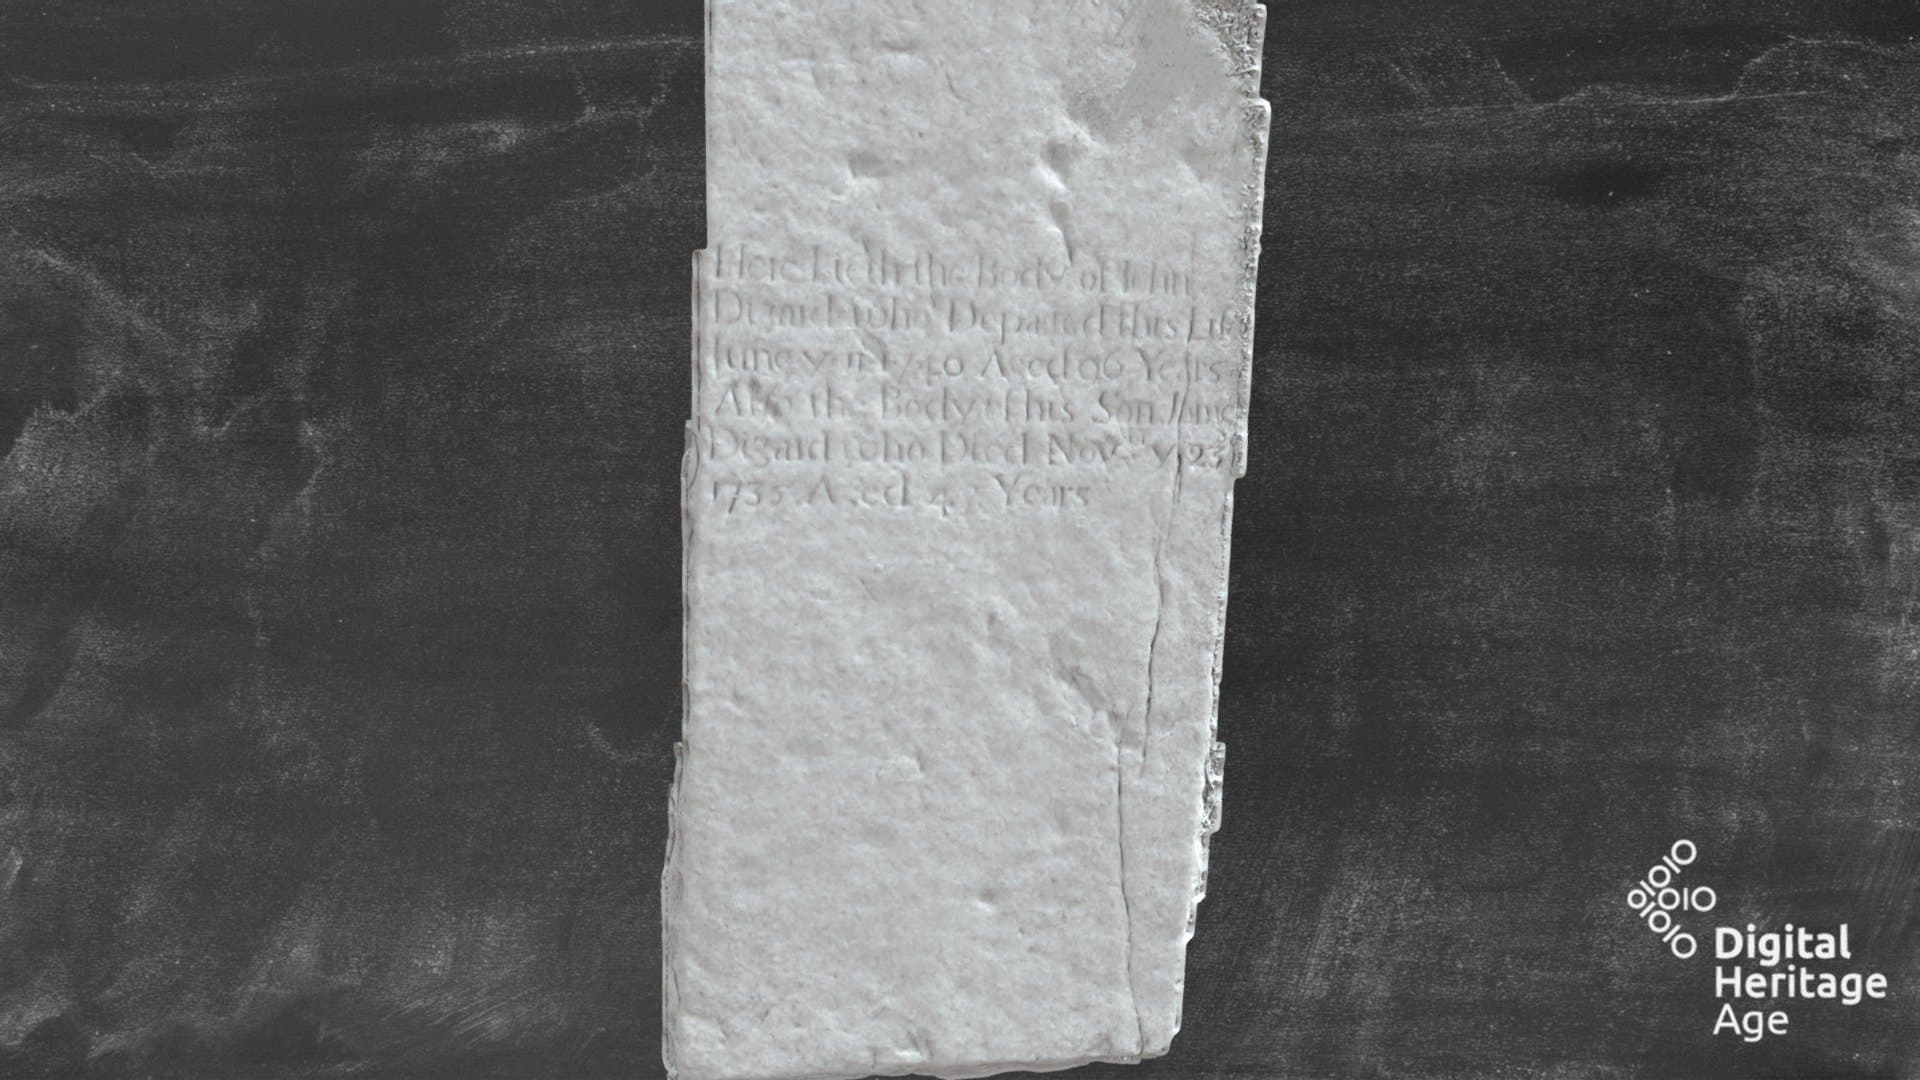 Here Lieth the Body of John
Digard who Departed this Life
June ye 1740 Aged 96 Years
Also the Body of his Son James
Digard who Died Novr ye 23
1735 Aged 4 Years
Digital
Heritage
Age